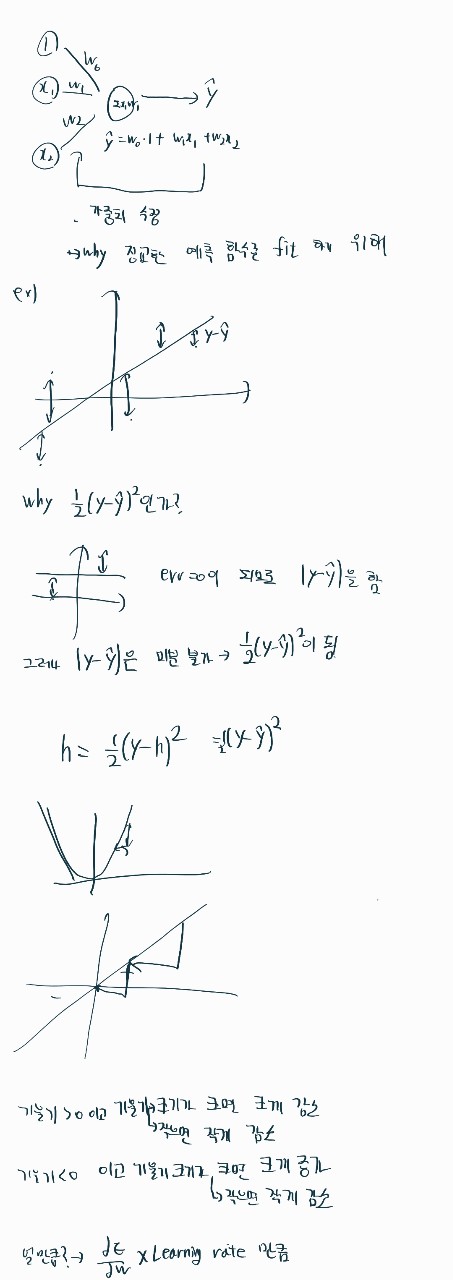 1
w₀
x₁ w₁
w₂
x₂
Σxᵢwᵢ → ŷ
ŷ = w₀·1 + w₁x₁ + w₂x₂
가중치 수정
→ why 정교한 예측 함수를 fit 하기 위해
ex)
y-ŷ
why ½(y-ŷ)²인가?
err=0이 되므로 |y-ŷ|을 함
그러나 |y-ŷ|은 미분 불가 → ½(y-ŷ)²이 됨
h = ½(y-h)² = ½(y-ŷ)²
기울기>0 이고 기울기 크기가 크면 크게 감소
↳작으면 작게 감소
기울기<0 이고 기울기 크기가 크면 크게 증가
↳작으면 작게 감소
얼만큼? → ∂E/∂w × Learning rate 만큼